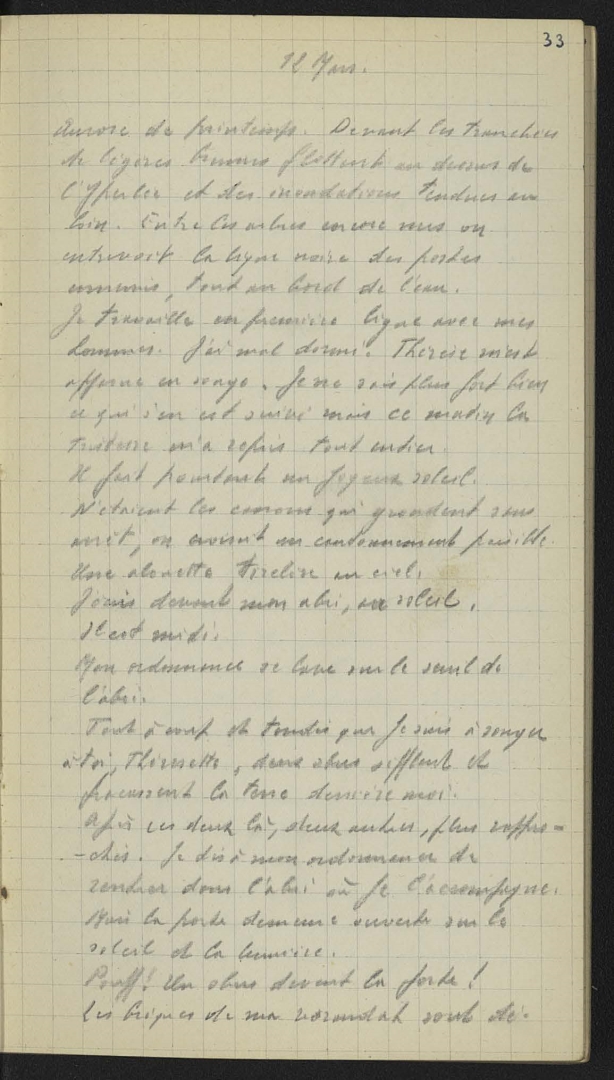 33
12 Mars.
Aurore de printemps. Devant les tranchées
de légères brumes flottent au dessus de
l'Yperlée et des inondations tendues au
loin. Entre les arbres encore nus on
entrevoit la ligne noire des postes
ennemis, tout au bord de l'eau.
Je travaille en première ligne avec mes
hommes. J'ai mal dormi. Thérèse m'est
apparue en songe. Je ne sais plus fort bien
ce qui s'en est suivi mais ce matin la
tristesse m'a repris tout entier.
Il fait pourtant un joyeux soleil.
N'étaient les canons qui grondent sans
arrêt, on croirait un cantonnement paisible.
Une alouette tirelire au ciel.
J'écris devant mon abri, au soleil.
Il est midi.
Mon ordonnance se lave sur le seuil de
l'abri.
Tout à coup et tandis que je suis à songer
à toi, Thérésette, deux obus sifflent et
fracassent la terre derrière moi.
Après ces deux là, deux autres, plus rappro-
-chés. Je dis à mon ordonnance de
rentrer dans l'abri où je l'accompagne.
Mais la porte demeure ouverte sur le
soleil et la lumière.
Pouff! Un obus devant la porte!
Les briques de ma vérandah sont dé-